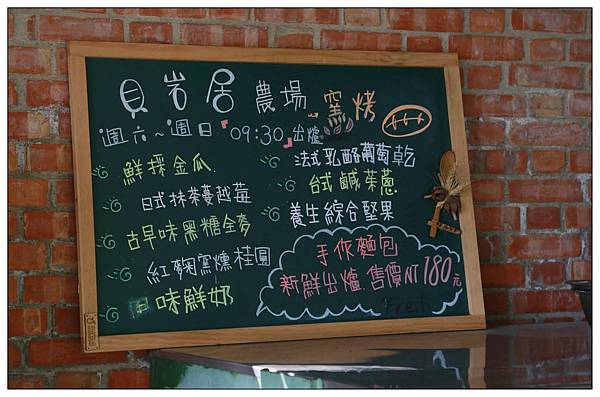 貝岩居 農場 窯烤
週六~週日「09:30」出爐
鮮採金瓜
日式抹茶蔓越莓
古早味黑糖全麥
紅麴窯燻桂圓
味鮮奶
法式乳酪葡萄乾
台式鹹茱蔥
養生綜合堅果
手作麵包
新鮮出爐 售價NT180元
Fresh